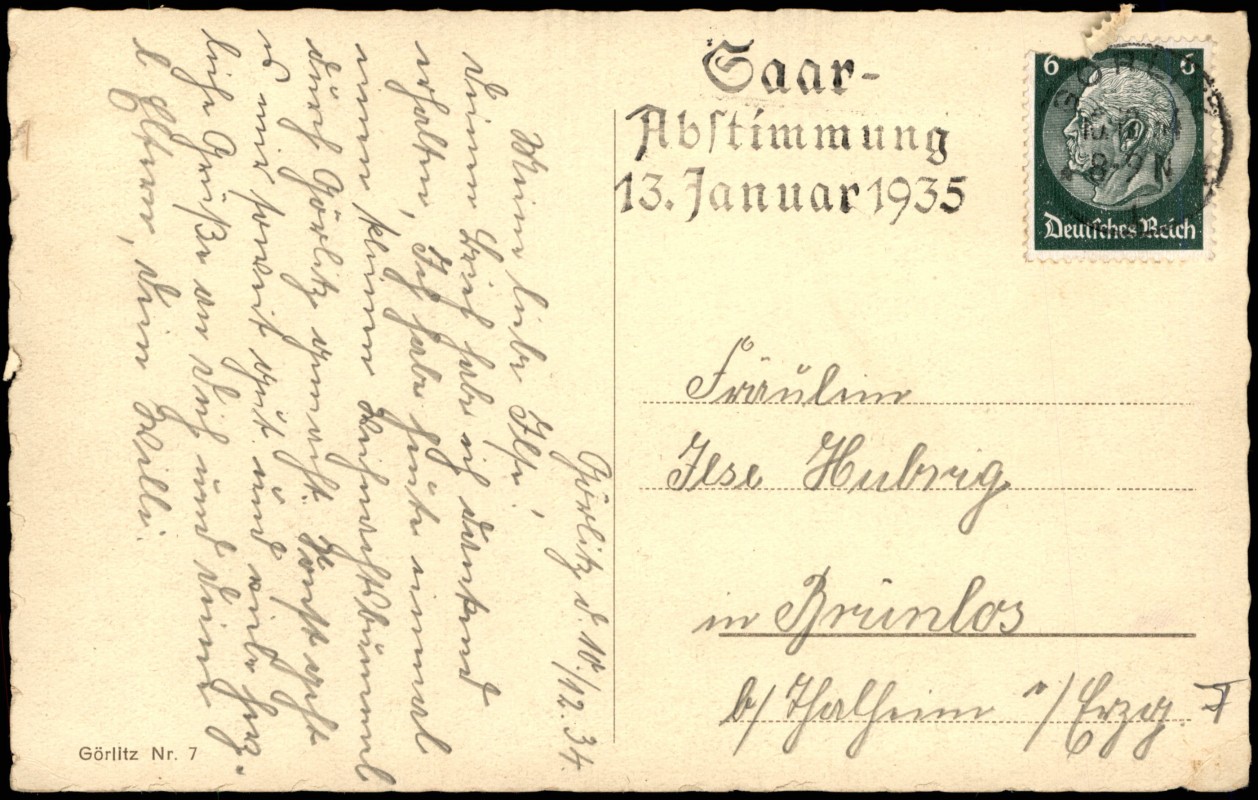 Saar-
Abstimmung
13. Januar 1935
6 6
Deutsches Reich
8-9 N
Görlitz d. 10./12.34.
Meine liebe Ilse!
Deinen Brief habe ich dankend
erhalten, Ich habe heute einmal
einen kleinen Weihnachtsbummel
durch Görlitz gemacht. Sonst geht
es mir soweit gut und viele herz-
liche Grüße an Dich und Deine
l. Eltern, dein Willi.
Fräulein
Ilse Hubrig
in Brünlos
b/Thalheim i/Erzg.
Görlitz Nr. 7